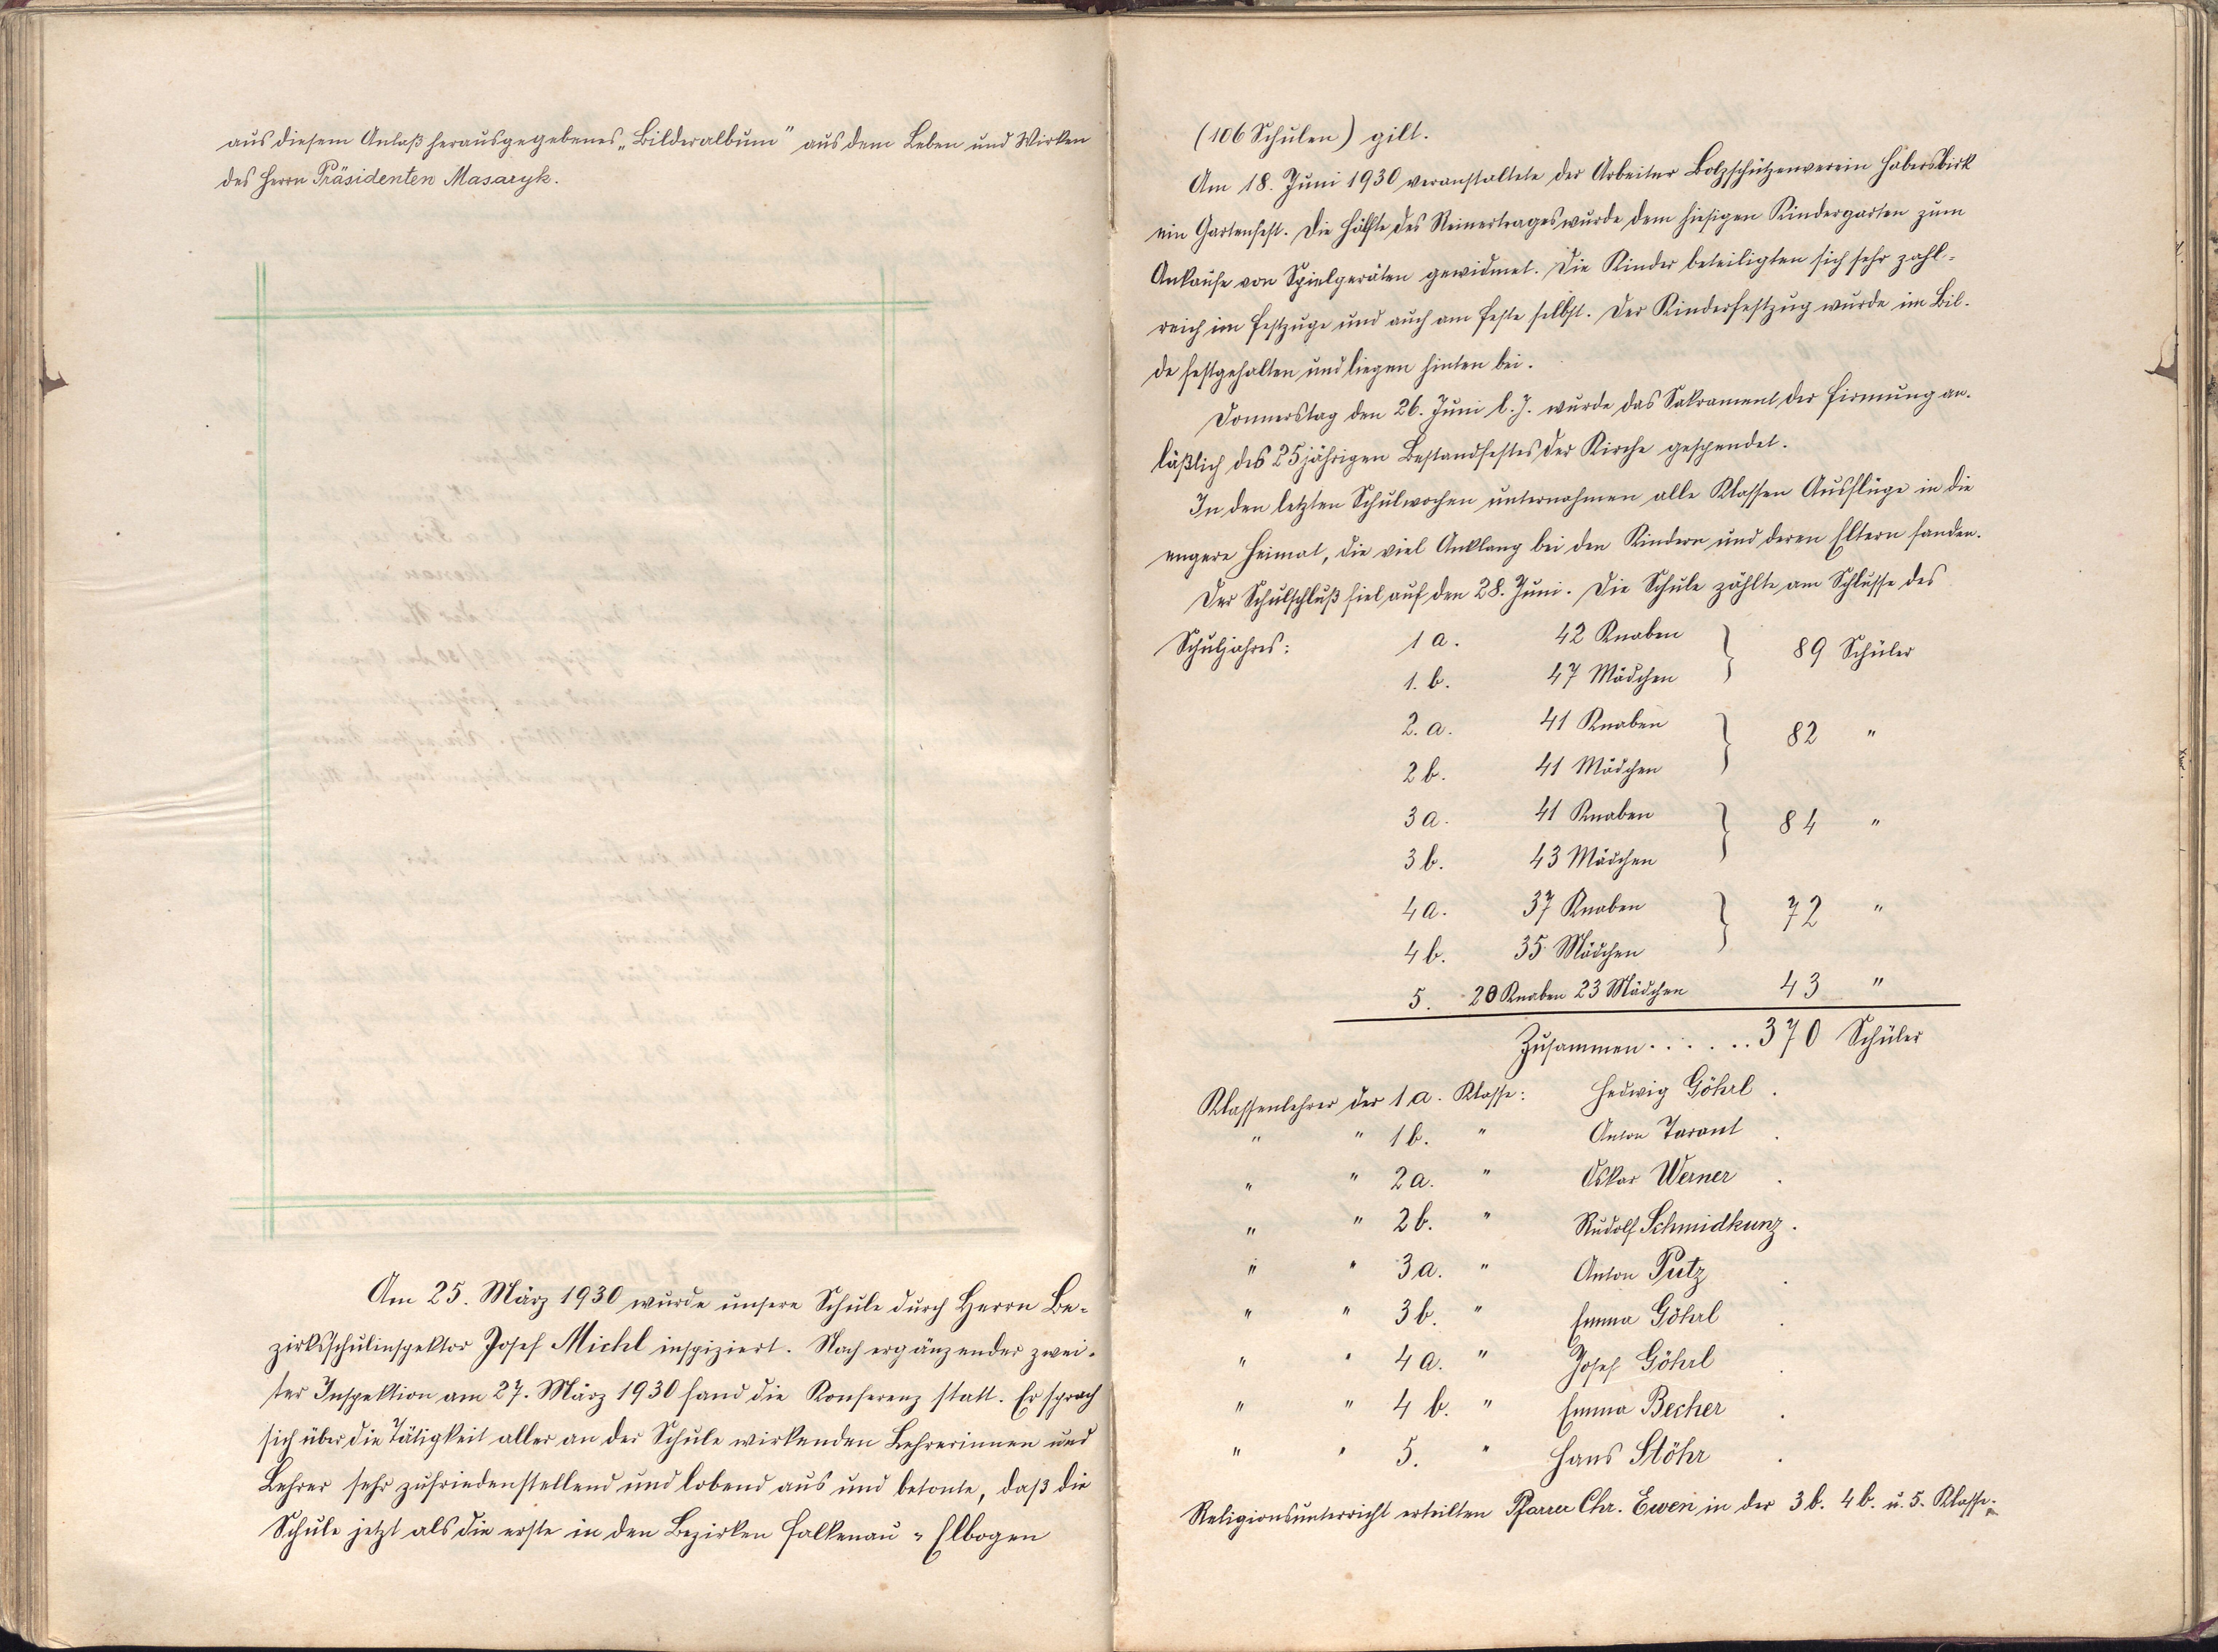 aus diesem Anlaß herausgegebenes „Bilderalbum" aus dem Leben und Wirken
des Herrn Präsidenten Masaryk.
Am 25. März 1930 wurde unsere Schule durch Herrn Be-
zirksschulinspektor Josef Michl inspiziert. Nach ergänzender zwei-
ter Inspektion am 27. März 1930 fand die Konferenz statt. Er sprach
sich über die Tätigkeit aller an der Schule wirkenden Lehrerinnen und
Lehrer sehr zufriedenstellend und lobend aus und betonte, daß die
Schule jetzt als die erste in den Bezirken Falkenau - Elbogen
(106 Schulen) gilt.
Am 18. Juni 1930 veranstaltete der Arbeiter Bolzschützenverein Habersbirk
ein Gartenfest. Die Hälfte des Reinertrages wurde dem hiesigen Kindergarten zum
Ankaufe von Spielgeräten gewidmet. Die Kinder beteiligten sich sehr zahl-
reich im Festzuge und auch am Feste selbst. Der Kinderfestzug wurde im Bil-
de festgehalten und liegen hinten bei.
Donnerstag den 26. Juni l. J. wurde das Sakrament der Firmung an-
läßlich des 25jährigen Bestandfestes der Kirche gespendet.
In den letzten Schulwochen unternahmen alle Klassen Ausflüge in die
engere Heimat, die viel Anklang bei den Kindern und deren Eltern fanden.
Der Schulschluß fiel auf den 28. Juni. Die Schule zählte am Schlusse des
Schuljahres: 1 a. 42 Knaben } 89 Schüler
1. b. 47 Mädchen
2. a. 41 Knaben } 82 "
2 b. 41 Mädchen
3 a. 41 Knaben } 84 "
3 b. 43 Mädchen
4 a. 37 Knaben } 72 "
4 b. 35 Mädchen
5. 20 Knaben 23 Mädchen 43 "
Zusammen . . . . . . 370 Schüler
Klassenlehrer der 1 a. Klasse: Hedwig Göhrl .
" " 1 b. " Anton Tarant .
" " 2 a. " Oskar Werner .
" " 2 b. " Rudolf Schmidkunz .
" " 3 a. " Anton Putz .
" " 3 b. " Emma Göhrl .
" " 4 a. " Josef Göhrl .
" " 4 b. " Emma Becher .
" " 5. " Hans Stöhr .
Religionsunterricht erteilten Pfarrer Chr. Ewen in der 3 b. 4 b. u. 5. Klasse.